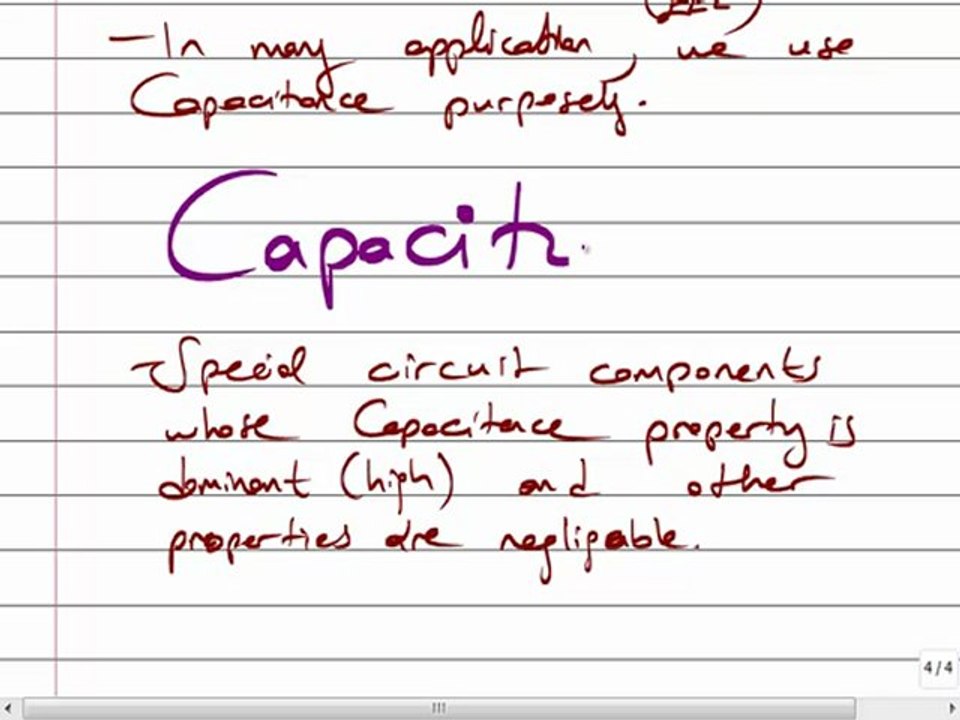 - In many application, we use
Capacitance purposely.
Capacit
- Special circuit components
whose Capacitance property is
dominant (high) and other
properties are negligable.
4/4